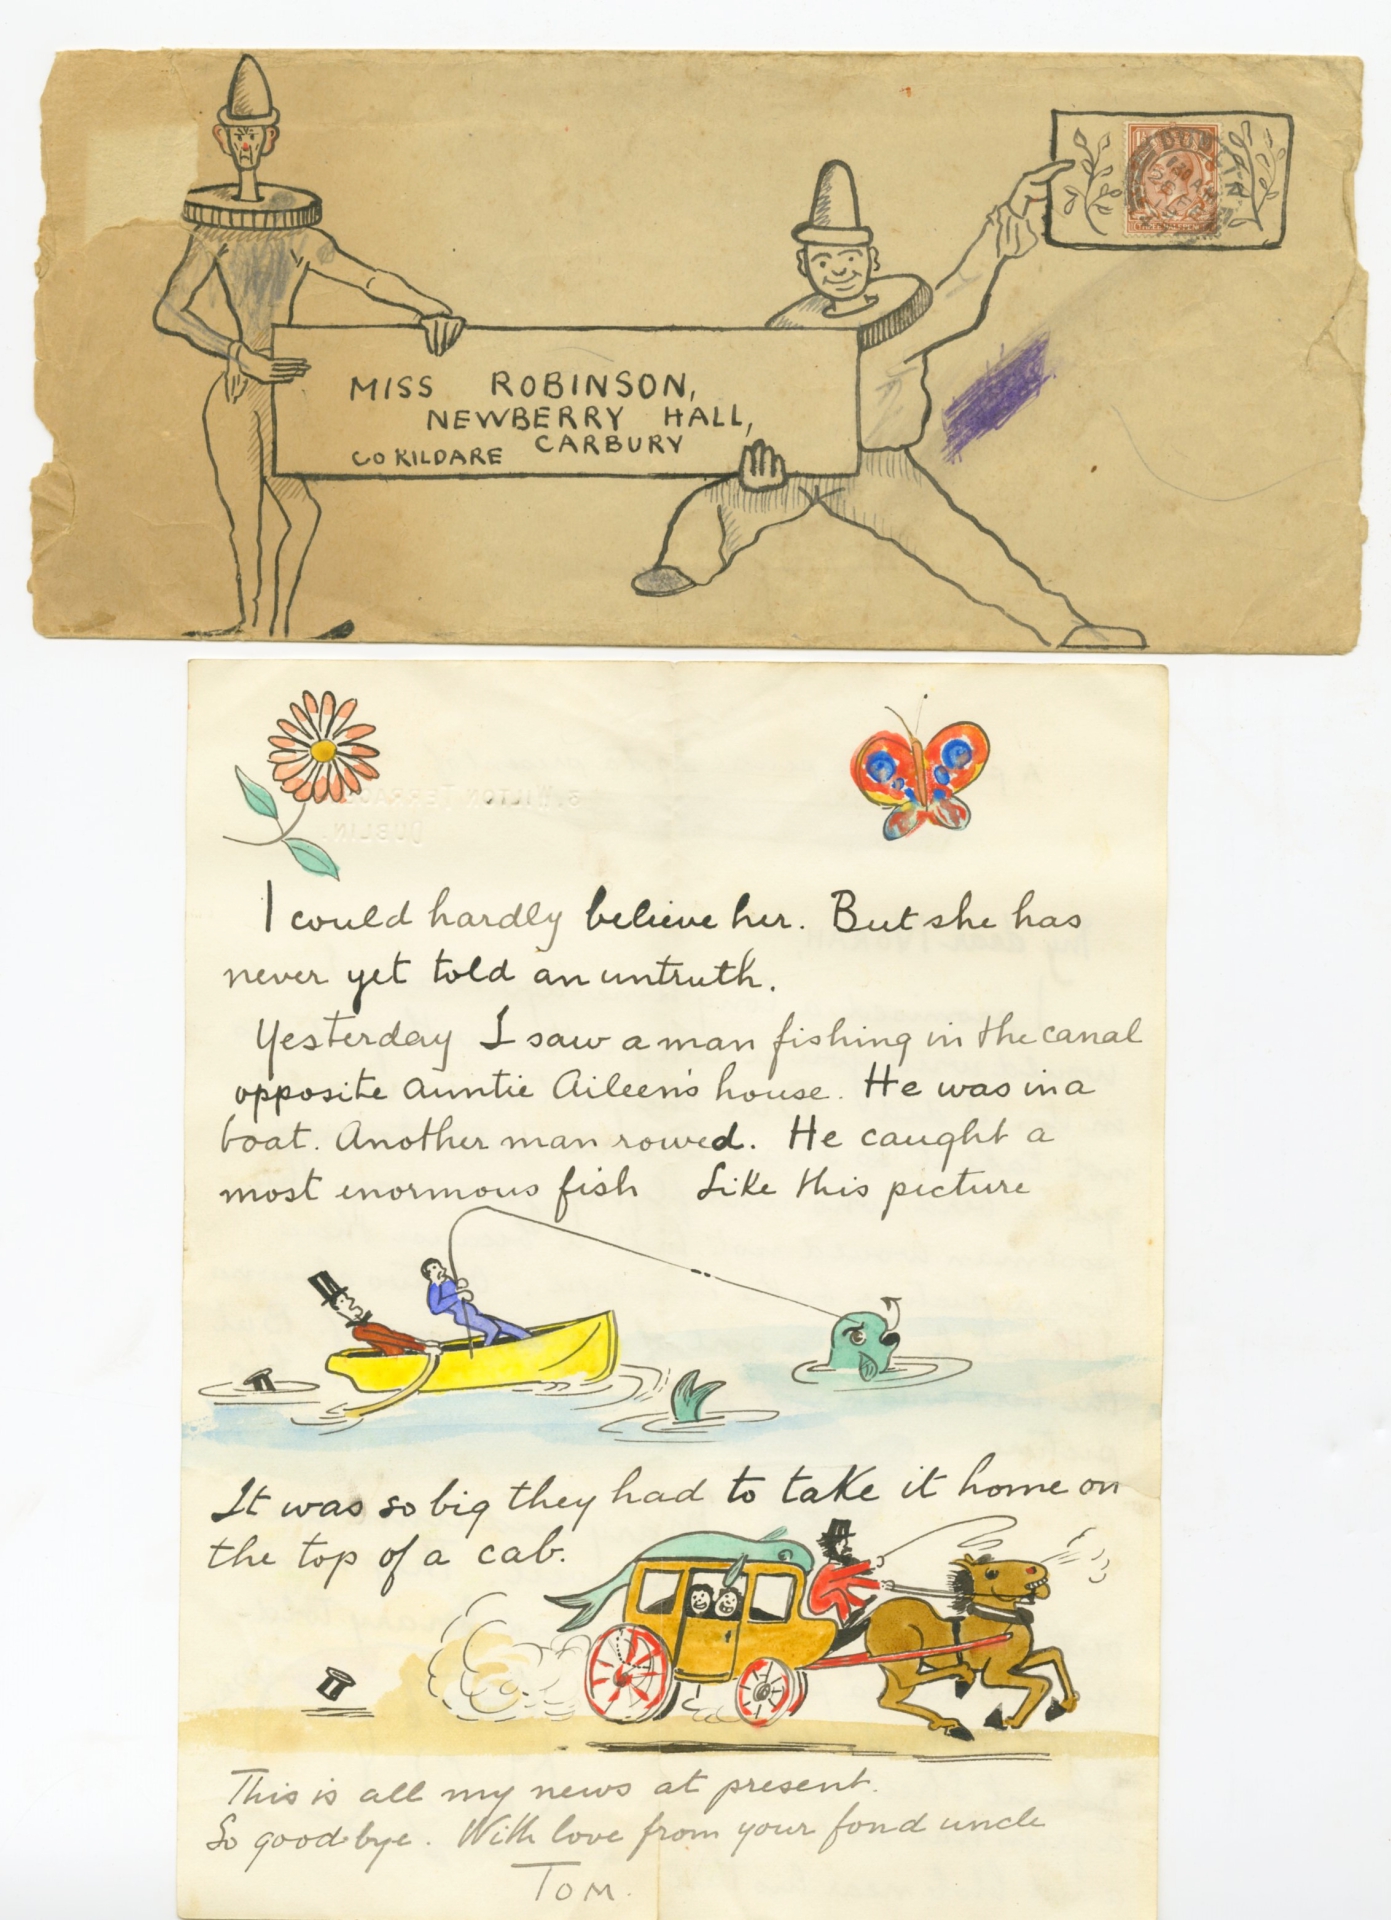 MISS ROBINSON,
NEWBERRY HALL,
CARBURY
CO KILDARE
DUBLIN
3. WILTON TERRACE
DUBLIN.
I could hardly believe her. But she has
never yet told an untruth.
Yesterday I saw a man fishing in the canal
opposite Auntie Aileen's house. He was in a
boat. Another man rowed. He caught a
most enormous fish Like this picture
It was so big they had to take it home on
the top of a cab.
This is all my news at present.
So good-bye. With love from your fond uncle
TOM.